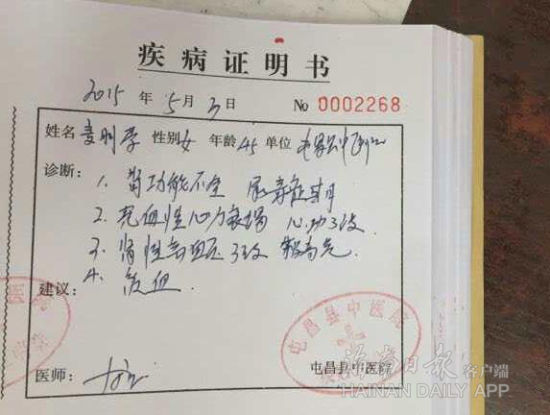 疾病证明书
2015 年 5 月 3 日 No 0002268
姓名 性别 女 年龄 45 单位
诊断: 1. 肾功能不全 尿毒症期
2. 充血性心力衰竭 心功3级
3. 肾性高血压3级 极高危
建议: 4. 贫血
屯昌县中医院
医师: 屯昌县中医院
海南日报 客户端
HAINAN DAILY APP